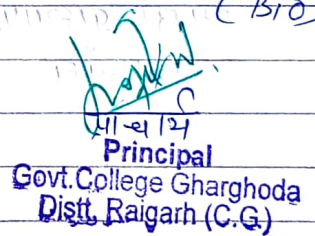 ( BIO
प्राचार्य
Principal
Govt.College Gharghoda
Distt. Raigarh (C.G.)